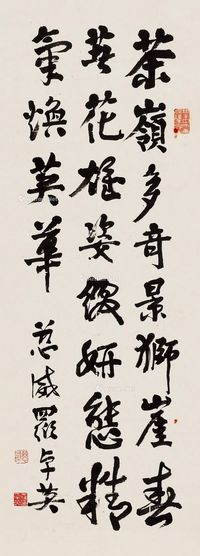 茶嶺多奇景獅崖春
發花雄姿復妍態精
氣煥英華
慈威羅卓英